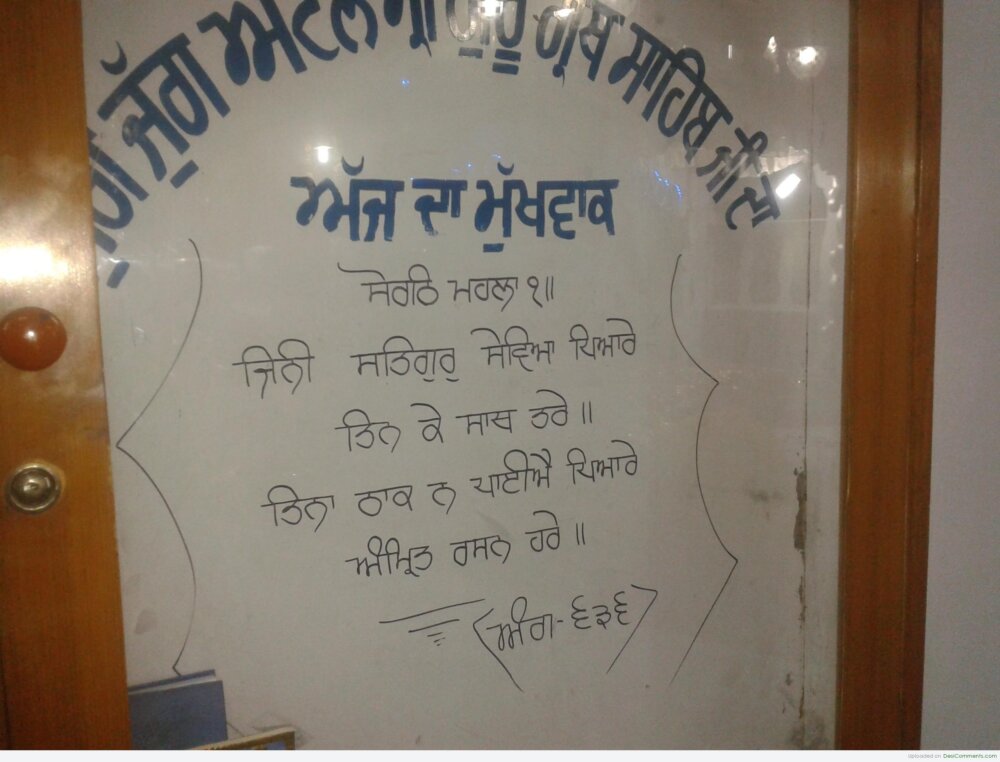 ਜੁੱਗੋ ਜੁੱਗ ਅਟੱਲ ਸ੍ਰੀ ਗੁਰੂ ਗ੍ਰੰਥ ਸਾਹਿਬ ਜੀ ਦਾ
ਅੱਜ ਦਾ ਮੁੱਖਵਾਕ
ਸੋਰਠਿ ਮਹਲਾ ੧॥
ਜਿਨੀ ਸਤਿਗੁਰੁ ਸੇਵਿਆ ਪਿਆਰੇ
ਤਿਨ ਕੇ ਸਾਥ ਤਰੇ॥
ਤਿਨਾ ਠਾਕ ਨ ਪਾਈਐ ਪਿਆਰੇ
ਅੰਮ੍ਰਿਤ ਰਸਨ ਹਰੇ॥
ਅੰਗ-੬੩੬
Uploaded on DesiComments.com